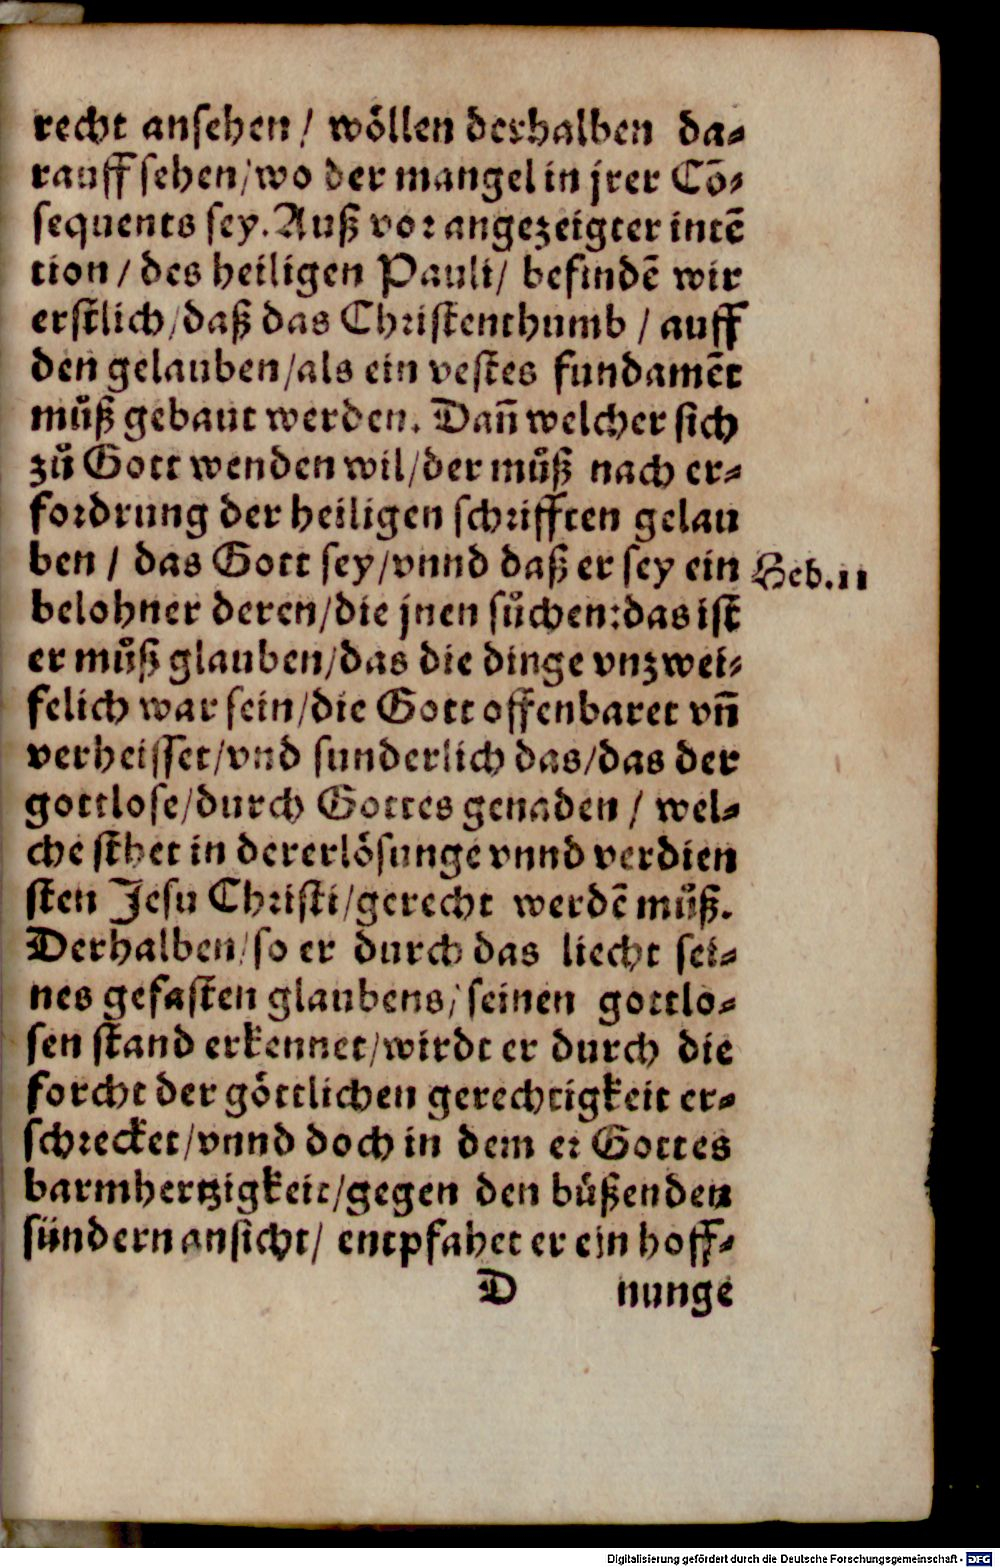 recht ansehen / wöllen derhalben da-
rauff sehen / wo der mangel in jrer Cō-
sequents sey. Auß vor angezeigter intē
tion / des heiligen Pauli / befindē wir
erstlich / daß das Christenthumb / auff
den gelauben / als ein vestes fundamēt
muͦß gebaut werden. Dañ welcher sich
zuͦ Gott wenden wil / der muͦß nach er-
fordrung der heiligen schrifften gelau
ben / das Gott sey / vnnd daß er sey ein
Heb. 11
belohner deren / die jnen suͦchen: das ist
er muͦß glauben / das die dinge vnzwei-
felich war sein / die Gott offenbaret vñ
verheisset / vnd sunderlich das / das der
gottlose / durch Gottes genaden / wel-
che sthet in der erlösunge vnnd verdien
sten Jesu Christi / gerecht werdē muͦß.
Derhalben / so er durch das liecht sei-
nes gefasten glaubens / seinen gottlo-
sen stand erkennet / wirdt er durch die
forcht der göttlichen gerechtigkeit er-
schrecket / vnnd doch in dem er Gottes
barmhertzigkeit / gegen den buͦßenden
sündern ansicht / entpfahet er ein hoff-
D nunge
Digitalisierung gefördert durch die Deutsche Forschungsgemeinschaft - DFG